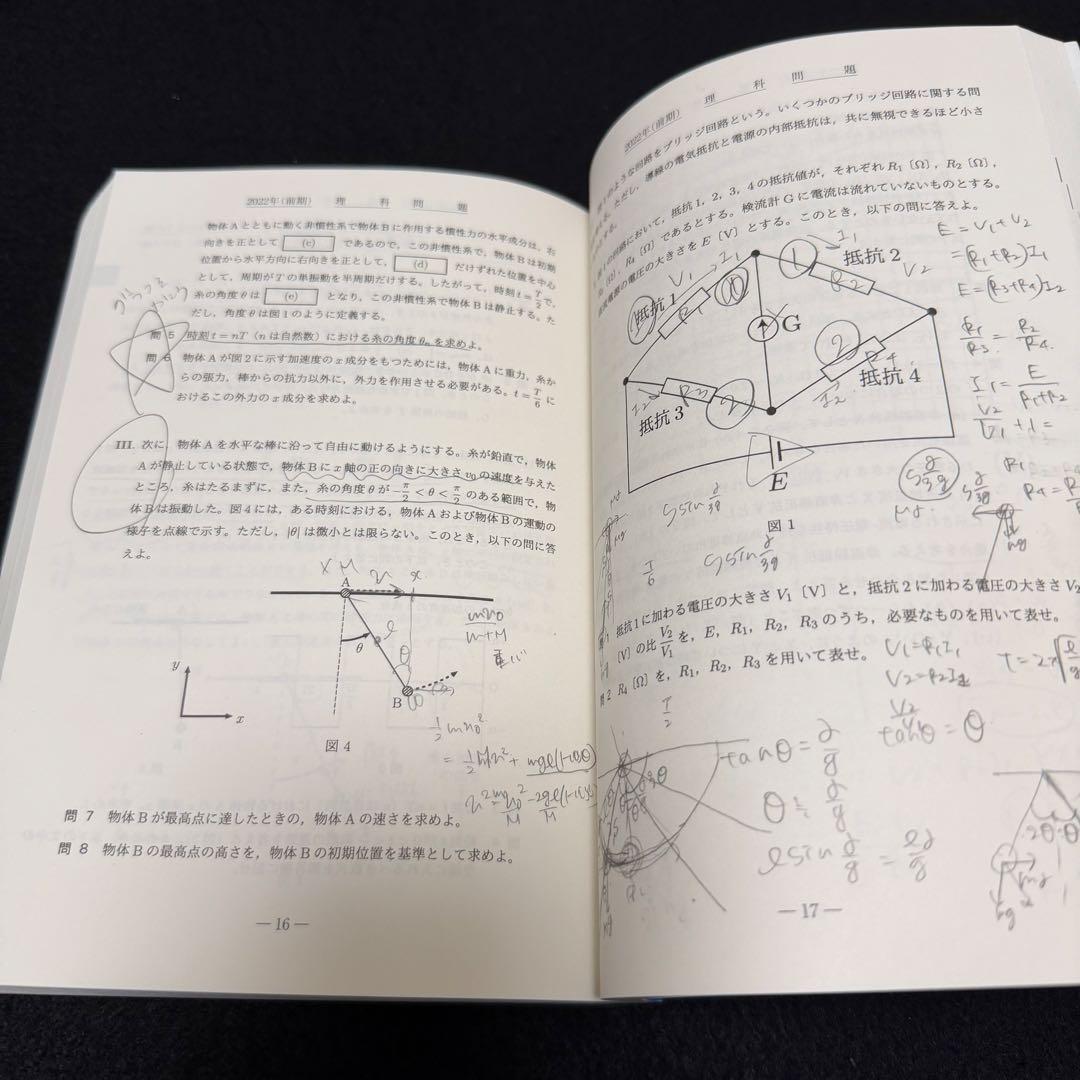 2022年(前期) 理 科 問 題
物体Aとともに動く非慣性系で物体Bに作用する慣性力の水平成分は，右
向きを正として (c) であるので，この非慣性系で，物体Bは初期
位置から水平方向に右向きを正として， (d) だけずれた位置を中心
として，周期がTの単振動を半周期だけする。したがって，時刻 t=T/2 で，
糸の角度θは (e) となり，この非慣性系で物体Bは静止する。た
だし，角度θは図1のように定義する。
問 5 時刻 t=nT（nは自然数）における糸の角度θnを求めよ。
問 6 物体Aが図2に示す加速度のx成分をもつためには，物体Aに重力，糸か
らの張力，棒からの抗力以外に，外力を作用させる必要がある。t=T/6 に
おけるこの外力のx成分を求めよ。
III. 次に，物体Aを水平な棒に沿って自由に動けるようにする。糸が鉛直で，物体
Aが静止している状態で，物体Bにx軸の正の向きに大きさv0の速度を与えた
ところ，糸はたるまずに，また，糸の角度θが −π/2<θ<π/2 のある範囲で，物
体Bは振動した。図4には，ある時刻における，物体Aおよび物体Bの運動の
様子を点線で示す。ただし，|θ|は微小とは限らない。このとき，以下の問に答
えよ。
M
A
x
mv0
m+M
ℓ
θ
θ
B
y
x
図4
1/2 mv0²
問 7 物体Bが最高点に達したときの，物体Aの速さを求めよ。
問 8 物体Bの最高点の高さを，物体Bの初期位置を基準として求めよ。
— 16 —
2022年(前期) 理 科 問 題
のような回路をブリッジ回路という。いくつかのブリッジ回路に関する問
ただし，導線の電気抵抗と電源の内部抵抗は，共に無視できるほど小さ
の回路において，抵抗1，2，3，4の抵抗値が，それぞれR1〔Ω〕，R2〔Ω〕，
〔Ω〕，R4〔Ω〕であるとする。検流計Gに電流は流れていないものとする。
電源の電圧の大きさをE〔V〕とする。このとき，以下の問に答えよ。
E = V1+V2
=(R1+R2)I1
E=(R3+R4)I2
R1/R3 = R2/R4
I1 = E/(R1+R2)
抵抗1
V1
I1
I1
抵抗2
V2
R2
G
抵抗3
R3
I2
R4
抵抗4
I2
E
図1
抵抗1に加わる電圧の大きさV1〔V〕と，抵抗2に加わる電圧の大きさV2
〔V〕の比 V2/V1 を，E，R1，R2，R3のうち，必要なものを用いて表せ。
問 2 R4〔Ω〕を，R1，R2，R3を用いて表せ。
V1=R1I1
T/6
T/2
— 17 —